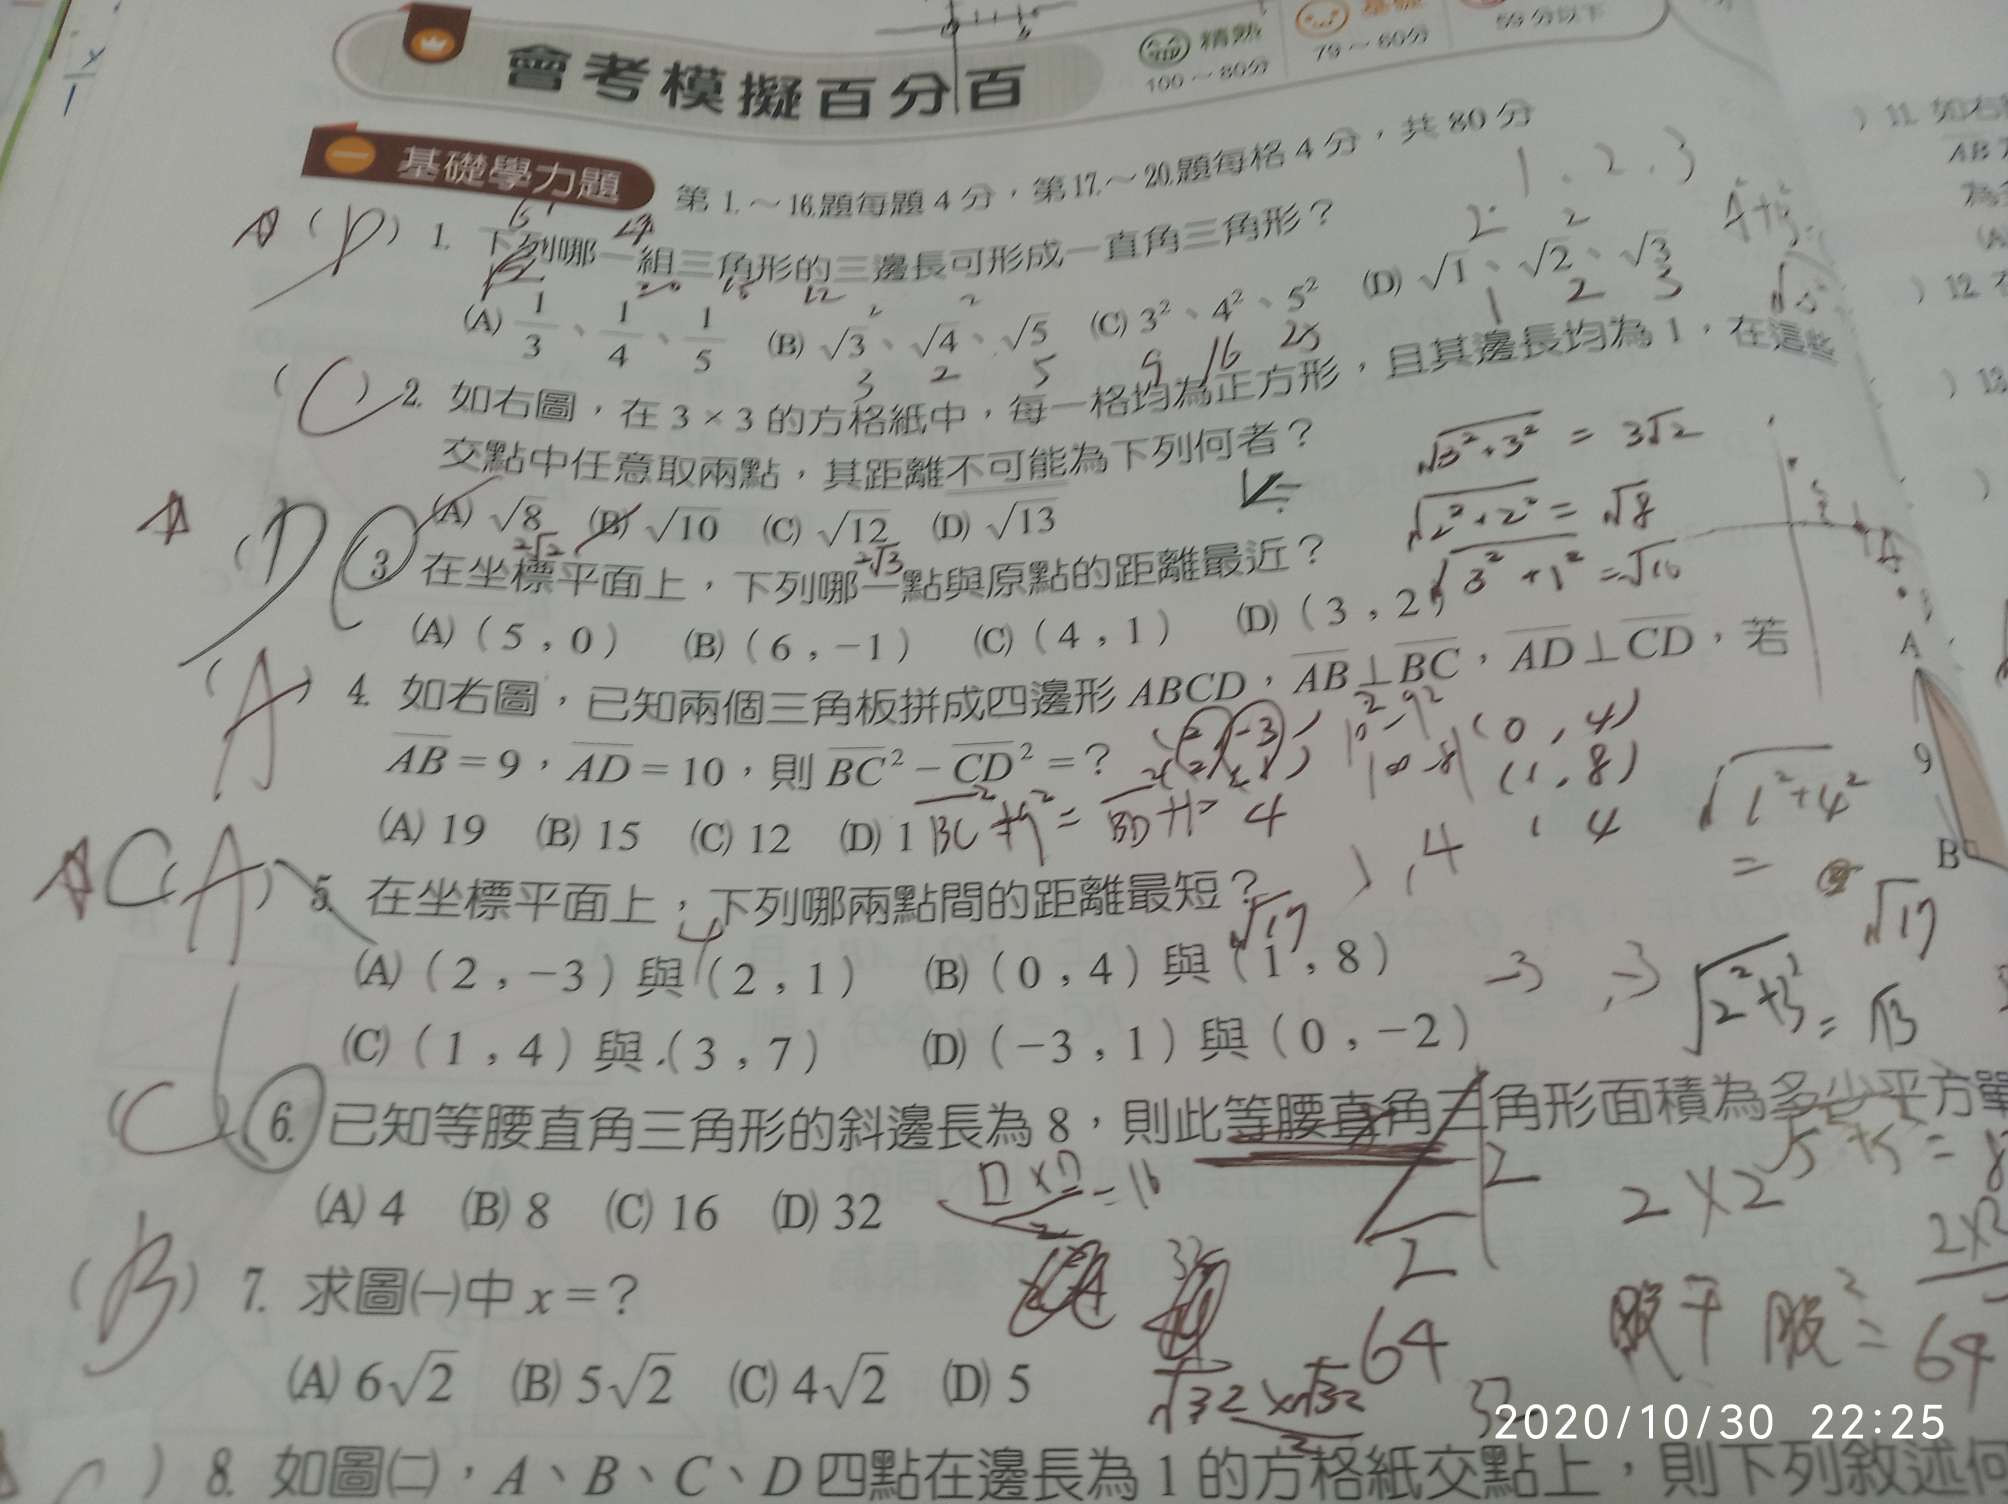 會考模擬百分百
精熟
100～80分
79～60分
59分以下
一 基礎學力題
第1.～16.題每題4分，第17.～20.題每格4分，共80分
1. 下列哪一組三角形的三邊長可形成一直角三角形？
(A) 1/3、1/4、1/5 (B) √3、√4、√5 (C) 3²、4²、5² (D) √1、√2、√3
3 2 5 9 16 25 1 2 3
1、2、3
(C) 2. 如右圖，在 3 × 3 的方格紙中，每一格均為正方形，且其邊長均為 1，在這些
交點中任意取兩點，其距離不可能為下列何者？
(A) √8 (B) √10 (C) √12 (D) √13
2√2 2√3
√3²+3² = 3√2
√2²+2² = √8
√3²+1² = √10
(D) 3. 在坐標平面上，下列哪一點與原點的距離最近？
(A) ( 5 , 0 ) (B) ( 6 , −1 ) (C) ( 4 , 1 ) (D) ( 3 , 2 )
(A) 4. 如右圖，已知兩個三角板拼成四邊形 ABCD，AB⊥BC，AD⊥CD，若
AB = 9，AD = 10，則 BC² − CD² = ？
(A) 19 (B) 15 (C) 12 (D) 1
10²-9²
(0 , 4)
(1 , 8)
1 4
√1²+4²
= √17
A
9
B
C (A) 5. 在坐標平面上，下列哪兩點間的距離最短？
4 √17
(A) ( 2 , −3 ) 與 ( 2 , 1 ) (B) ( 0 , 4 ) 與 ( 1 , 8 )
(C) ( 1 , 4 ) 與 ( 3 , 7 ) (D) ( −3 , 1 ) 與 ( 0 , −2 )
-3 , -3
√2²+3² = √13
(C) 6. 已知等腰直角三角形的斜邊長為 8，則此等腰直角三角形面積為多少平方單
(A) 4 (B) 8 (C) 16 (D) 32
2
2
2×2
(B) 7. 求圖㈠中 x = ？
(A) 6√2 (B) 5√2 (C) 4√2 (D) 5
64
股 股² = 64
√32 × √32
2
32
2020/10/30 22:25
8. 如圖㈡，A、B、C、D 四點在邊長為 1 的方格紙交點上，則下列敘述何
11. 如右
AB
12.
13.